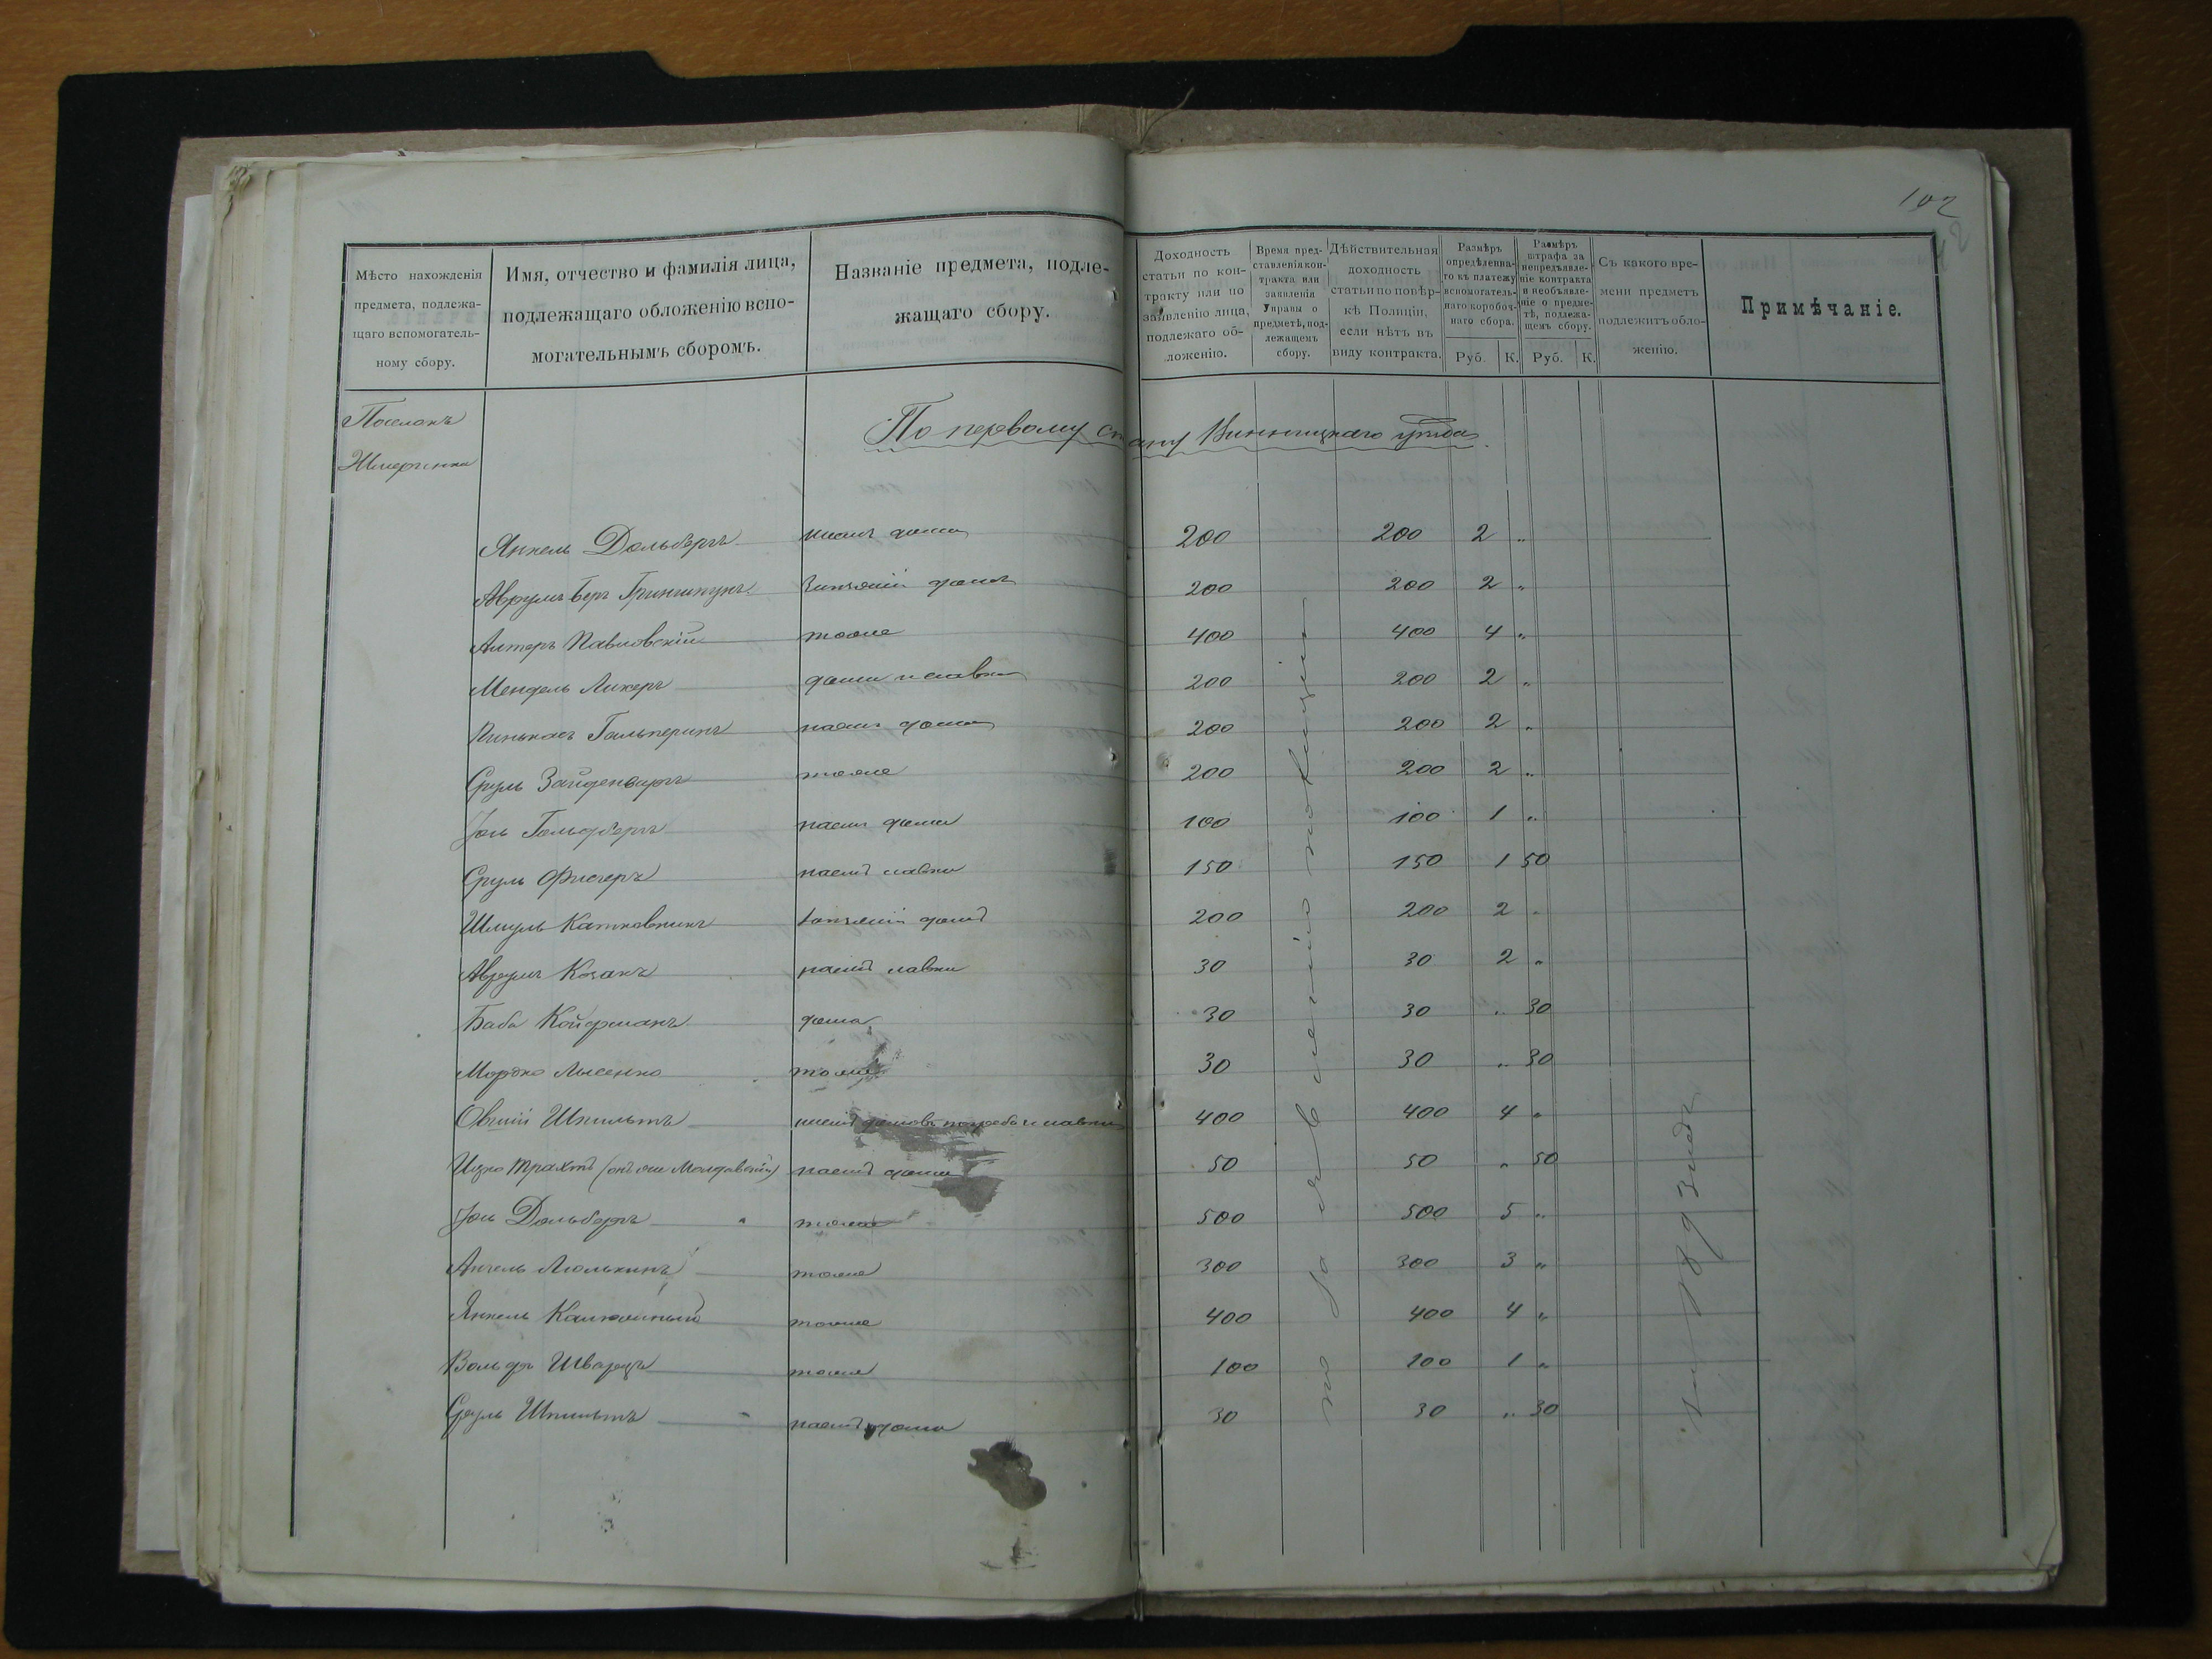 102
Мѣсто нахожденія предмета, подлежащаго вспомогательному сбору.
Имя, отчество и фамилія лица, подлежащаго обложенію вспомогательнымъ сборомъ.
Названіе предмета, подлежащаго сбору.
Доходность статьи по контракту или по заявленію лица, подлежаго обложенію.
Время представленія контракта или заявленія Управы о предметѣ, подлежащемъ сбору.
Дѣйствительная доходность статьи по повѣркѣ Полиціи, если нѣтъ въ виду контракта.
Размѣръ опредѣленнаго къ платежу вспомогательнаго коробочнаго сбора.
Руб. К.
Размѣръ штрафа за непредъявленіе контракта и необъявленіе о предметѣ, подлежащемъ сбору.
Руб. К.
Съ какого времени предметъ подлежитъ обложенію.
Примѣчаніе.
Поселокъ
Жмеринка
По первому стану Винницкаго уѣзда.
Янкель Дольбергъ наемъ дома 200 200 2 „
Аврумъ Беръ Гриншпунъ заѣзжій домъ 200 200 2 „
Алтеръ Павловскій тоже 400 400 4 „
Мендель Ликеръ дома и лавки 200 200 2 „
Пинькасъ Гальперинъ наемъ дома 200 200 2 „
Сруль Зайденваргъ тоже 200 200 2 „
Іось Гольдбергъ наемъ дома 100 100 1 „
Сруль Фишеръ наемъ лавки 150 150 1 50
Шмуль заѣзжій домъ 200 200 2 „
Аврумъ Козакъ наемъ лавки 30 30 2 „
Баба Койфманъ дома 30 30 „ 30
Мордко Лысенко тоже 30 30 „ 30
Овшій Шпильтъ наемъ домовъ погреба и лавки 400 400 4 „
Ицко Трахтъ (онъ же Молдавскій) наемъ дома 50 50 „ 50
Іось Дольбергъ тоже 500 500 5 „
Анчель Люлькинъ тоже 300 300 3 „
Янкель Калюжный тоже 400 400 4 „
Вольфъ Шварцъ тоже 100 100 1 „
Сруль Шпильтъ наемъ дома 30 30 „ 30
по заявленію полиціи
1893